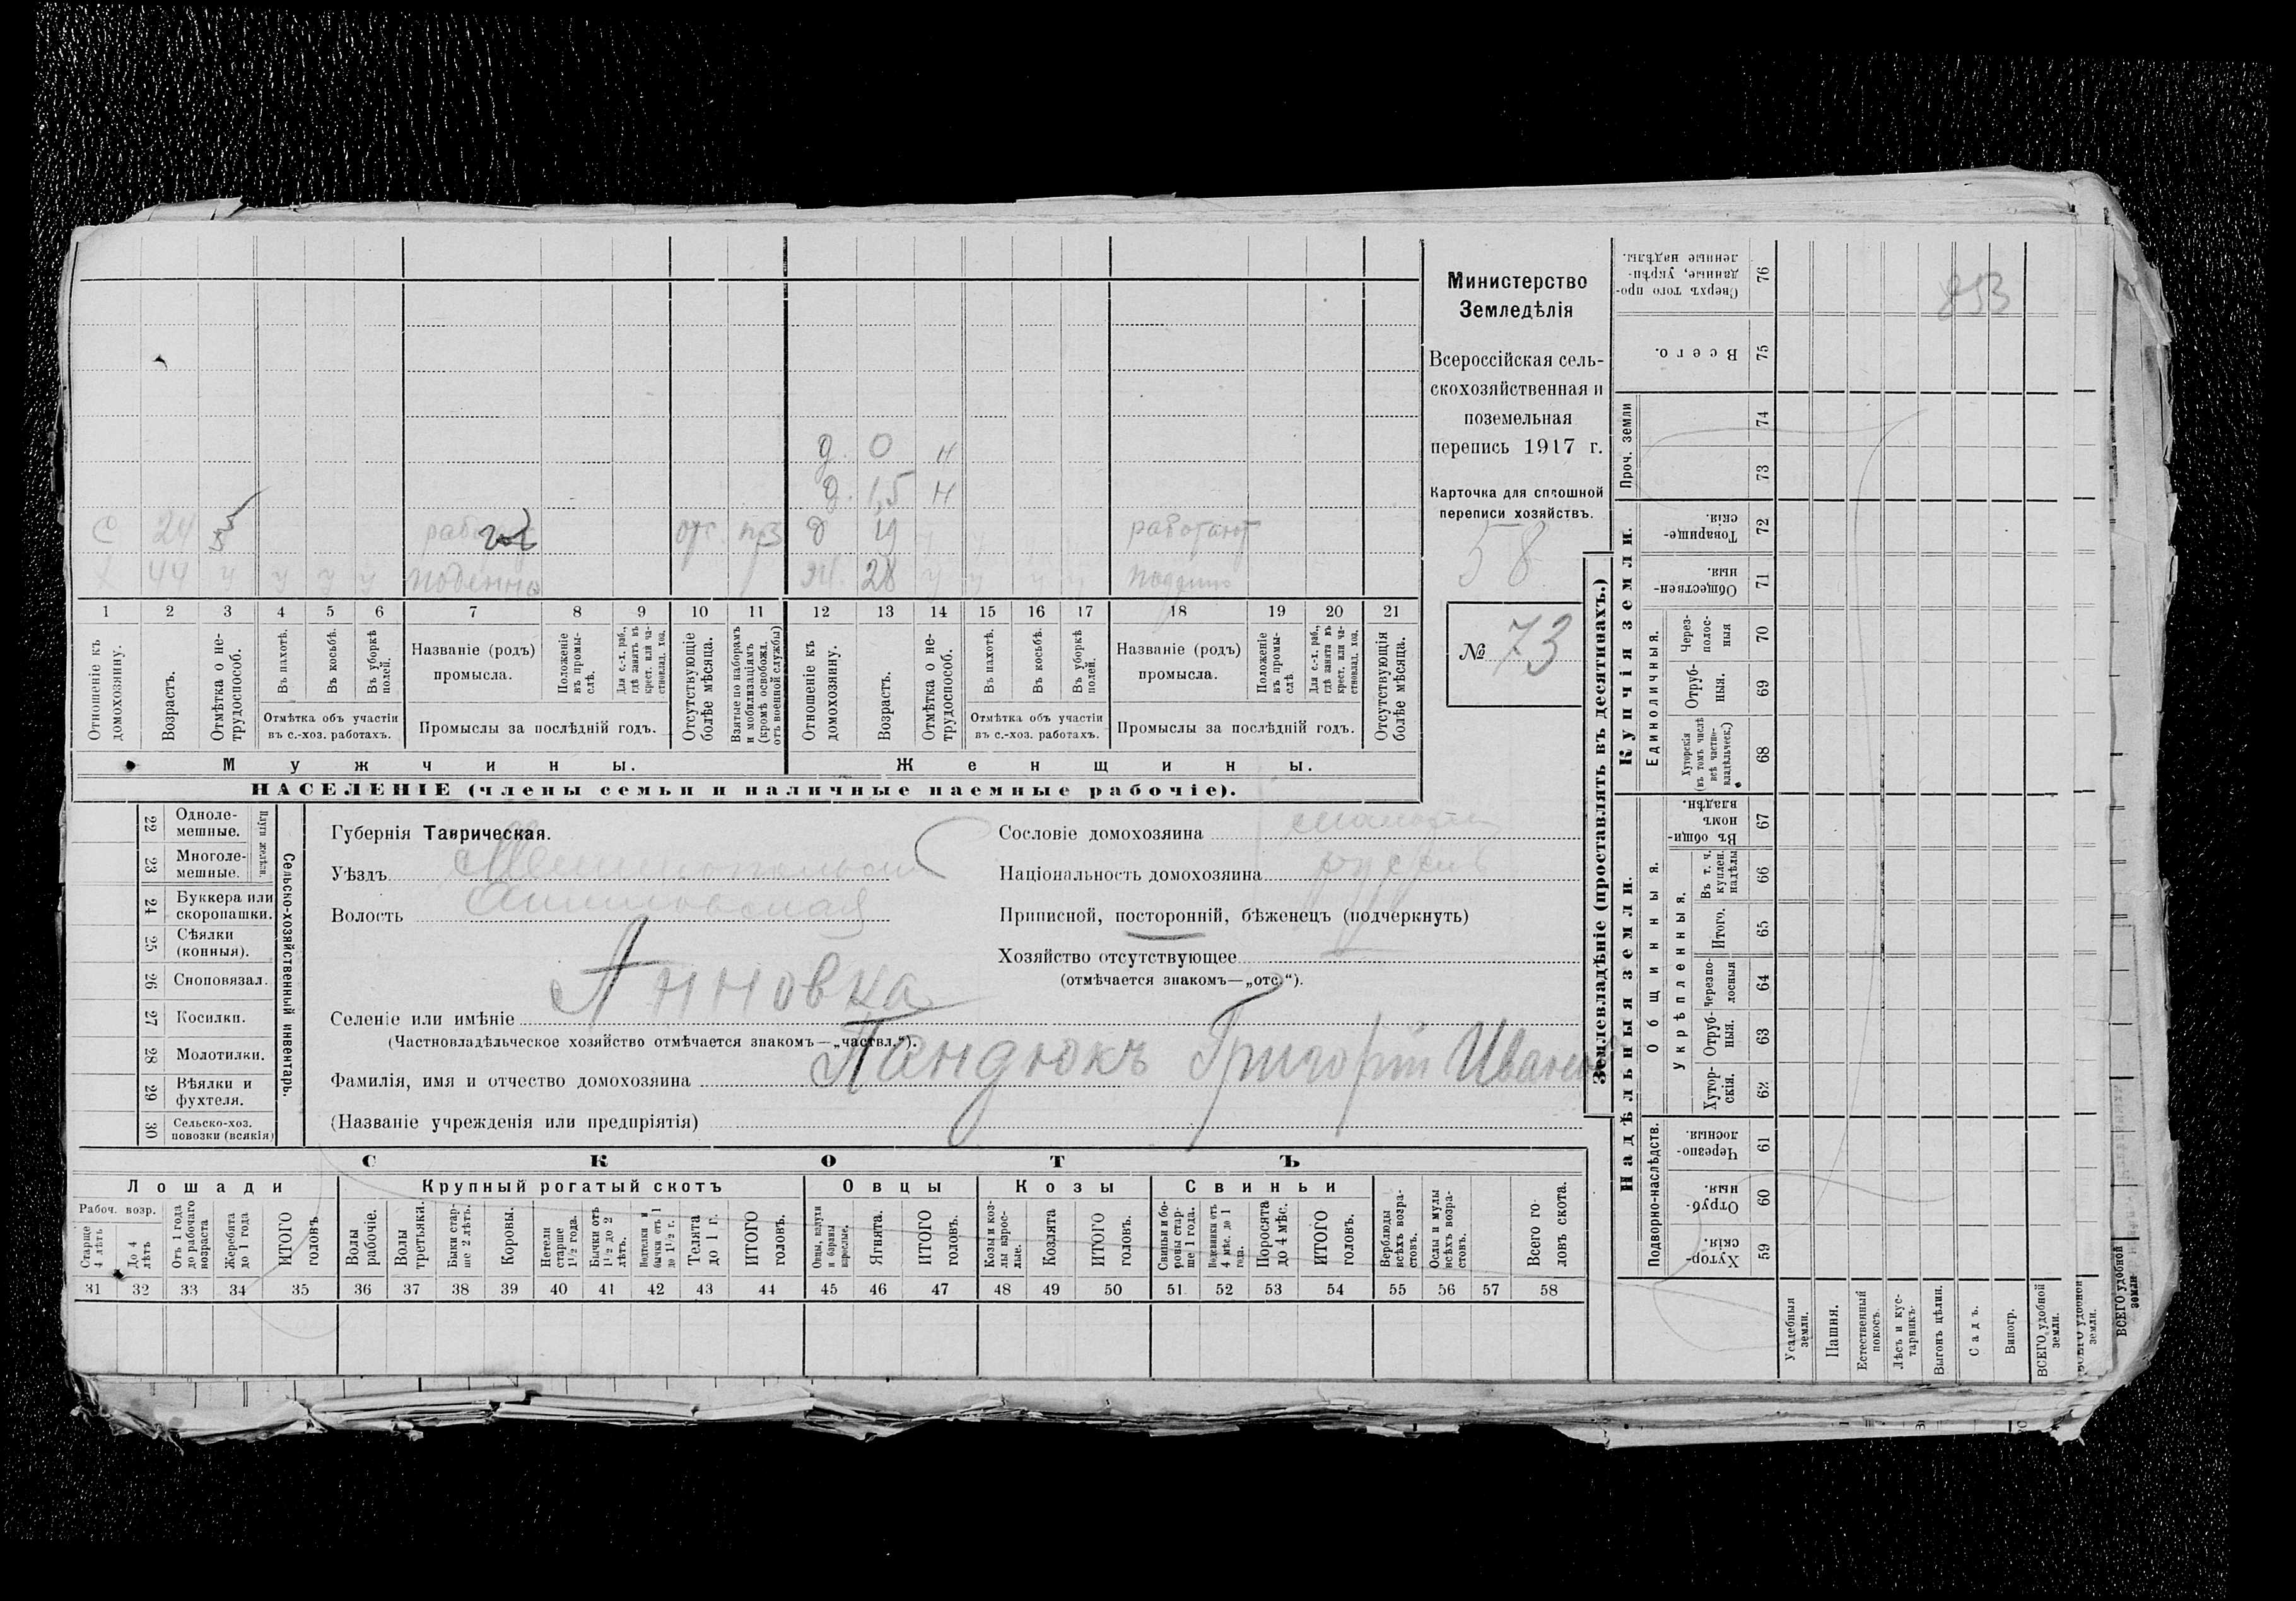 Министерство
Земледѣлія
Всероссійская сель-
скохозяйственная и
поземельная
перепись 1917 г.
Карточка для сплошной
переписи хозяйствъ.
58
№ 73
853
д. 0 н
д. 1,5 н
С 24 отс. д 19 работают
44 ч ч ч ч поденно Ж. 28 ч ч ч ч
1 2 3 4 5 6 7 8 9 10 11 12 13 14 15 16 17 18 19 20 21
Отношеніе къ домохозяину.
Возрастъ.
Отмѣтка о не-трудоспособ.
Въ пахотѣ.
Въ косьбѣ.
Въ уборкѣ полей.
Отмѣтка объ участіи въ с.-хоз. работахъ.
Названіе (родъ) промысла.
Положеніе въ промы-слѣ.
Для с.-х. раб., гдѣ занятъ въ крест. или ча-стновлад. хоз.
Промыслы за послѣдній годъ.
Отсутствующіе болѣе мѣсяца.
Взятые по наборамъ и мобилизаціямъ (кромѣ освобожд. отъ военной службы)
Отношеніе къ домохозяину.
Возрастъ.
Отмѣтка о не-трудоспособ.
Въ пахотѣ.
Въ косьбѣ.
Въ уборкѣ полей.
Отмѣтка объ участіи въ с.-хоз. работахъ.
Названіе (родъ) промысла.
Положеніе въ промы-слѣ
Для с.-х. раб., гдѣ занята въ крест. или ча-стновлад. хоз.
Промыслы за послѣдній годъ.
Отсутствующія болѣе мѣсяца.
Мужчины.
Женщины.
НАСЕЛЕНІЕ (члены семьи и наличные наемные рабочіе).
22 Одноле-мешные.
23 Многоле-мешные.
Плуги желѣзн.
24 Буккера или скоропашки.
25 Сѣялки (конныя).
26 Сноповязал.
27 Косилки.
28 Молотилки.
29 Вѣялки и фухтеля.
30 Сельско-хоз. повозки (всякія)
Сельско-хозяйственный инвентарь.
Губернія Таврическая.
Уѣздъ Мелитопольскій
Волость
Селеніе или имѣніе Анновка
(Частновладѣльческое хозяйство отмѣчается знакомъ—„частвл.“).
Фамилія, имя и отчество домохозяина Пандюкъ Григорій Иванов
(Названіе учрежденія или предпріятія)
Сословіе домохозяина
Національность домохозяина русскій
Приписной, посторонній, бѣженецъ (подчеркнуть)
Хозяйство отсутствующее
(отмѣчается знакомъ—„отс.“).
СКОТЪ
Лошади
Крупный рогатый скотъ
Овцы
Козы
Свиньи
Рабоч. возр.
Старше 4 лѣтъ
До 4 лѣтъ
Отъ 1 года до рабочаго возраста
Жеребята до 1 года
ИТОГО головъ
Волы рабочіе.
Волы третьяки.
Быки стар-ше 2 лѣтъ.
Коровы.
Нетели старше 1½ года.
Бычки отъ 1½ до 2 лѣтъ.
Подтелки и бычки отъ 1 до 1½ г.
Телята до 1 г.
ИТОГО головъ.
Овцы, валухи и бараны взрослые.
Ягнята.
ИТОГО головъ.
Козы и коз-лы взрос-лые.
Козлята
ИТОГО головъ.
Свиньи и бо-ровы стар-ше 1 года.
Подсвинки отъ 4 мѣс. до 1 года.
Поросята до 4 мѣс.
ИТОГО головъ.
Верблюды всѣхъ возра-стовъ.
Ослы и мулы всѣхъ возра-стовъ.
Всего го-ловъ скота.
31 32 33 34 35 36 37 38 39 40 41 42 43 44 45 46 47 48 49 50 51 52 53 54 55 56 57 58
Землевладѣніе (проставлять въ десятинахъ.)
Купчія земли.
Надѣльныя земли.
Сверхъ того про-данные, укрѣп-ленные надѣлы. 76
Всего. 75
Проч. земли 74 73
Товарище-скія. 72
Обществен-ныя. 71
Единоличныя.
Через-полос-ныя 70
Отруб-ныя. 69
Хуторскія (въ томъ числѣ всѣ частно-владѣльческ.) 68
Общинныя.
Въ общи-номъ владѣн. 67
Укрѣпленныя.
Въ т. ч. куплен. надѣлы 66
Итого. 65
Черезпо-лосныя 64
Отруб-ныя. 63
Хутор-скія. 62
Подворно-наслѣдств.
Черезпо-лосныя. 61
Отруб-ныя. 60
Хутор-скія. 59
Усадебныя земли.
Пашня.
Естественный покосъ.
Лѣсъ и кус-тарникъ.
Выгонъ цѣлин.
Садъ.
Виногр.
ВСЕГО удобной земли.
ВСЕГО удобной земли.
ВСЕГО удобной земли.